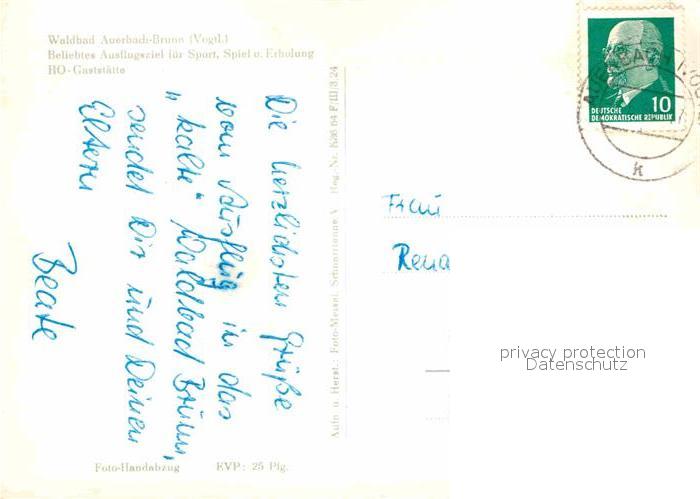 Waldbad Auerbach-Brunn (Vogtl.)
Beliebtes Ausflugsziel für Sport, Spiel u. Erholung
HO-Gaststätte
Die herzlichsten Grüße
vom Ausflug in das
"kalte" Waldbad Brunn,
sendet Dir und Deinen
Eltern
Beate
Foto-Handabzug EVP: 25 Pfg.
Aufn. u. Herst.: Foto-Messel, Reg. Nr. K26 64 F/III/3.24
DEUTSCHE
DEMOKRATISCHE REPUBLIK
10
AUERBACH
k
Frau
Rena
privacy protection
Datenschutz